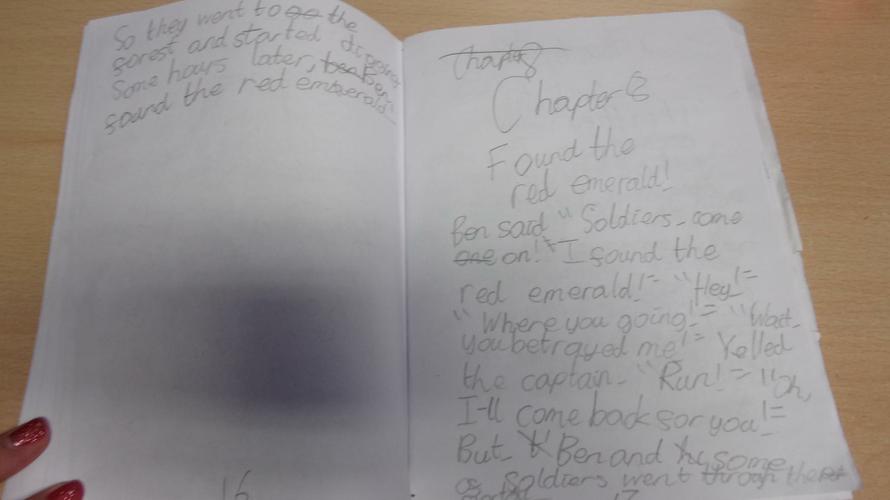 So they went to go the
forest and started digging
Some hours later, ben Ben
found the red emberald.
16
Chapter 8
Chapter 8
Found the
red emerald!
Ben said "Soldiers come
one on!" "I found the
red emerald!" "Hey!"
"Where you going!" "Wait
you betrayed me!" Yelled
the captain. "Run!" "Oh,
I'll come back for you!"
But Ben and some
of soldiers went through the
17